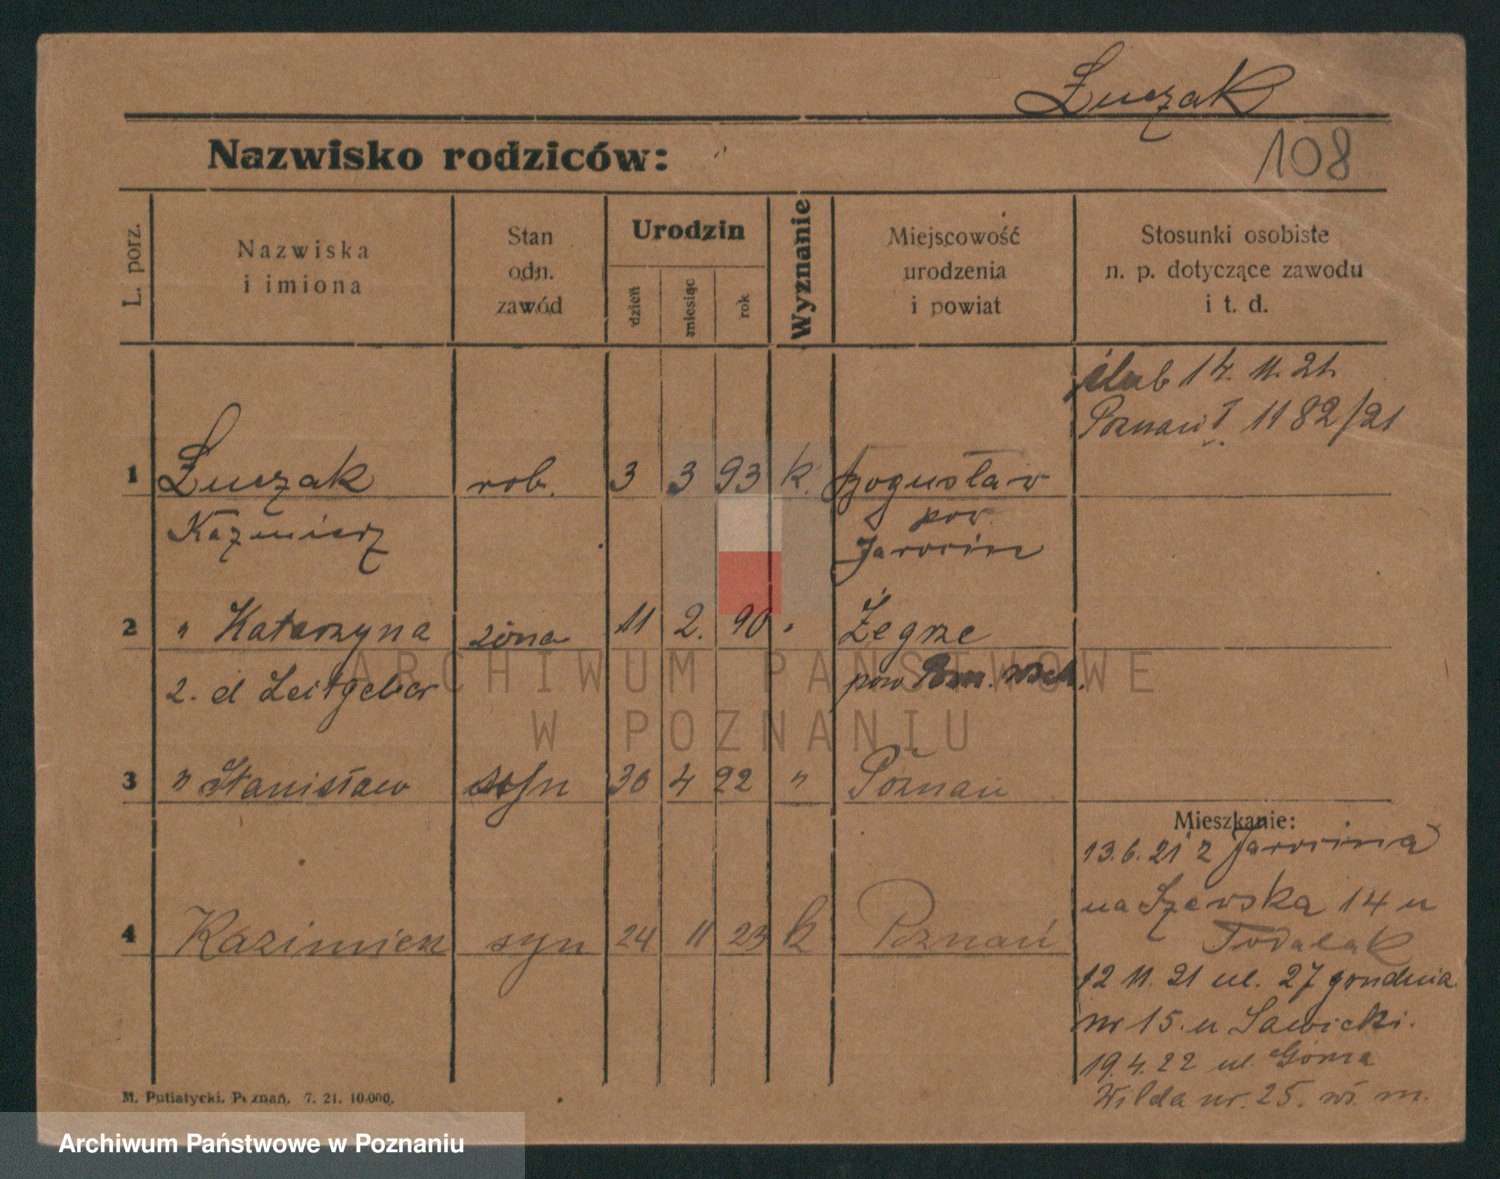 Łuczak
Nazwisko rodziców:
108
L. porz.
Nazwiska
i imiona
Stan
odn.
zawód
Urodzin
dzień
miesiąc
rok
Wyznanie
Miejscowość
urodzenia
i powiat
Stosunki osobiste
n. p. dotyczące zawodu
i t. d.
ślub 14. 11. 21.
Poznań I 1182/21
1 Łuczak rob. 3 3 93 k. Bogusław
Kaźmierz pow.
Jarocin
2 " Katarzyna żona 11 2. 90 " Żegrze
2. d Leitgeber pow. Pozn. Wsch.
3 " Stanisław syn 30 4 22 " Poznań
Mieszkanie:
13.6.21 z Jarocina
na Szewska 14 u
Todalak
4 Kazimierz syn 24 11 23 k Poznań
12 11. 21 ul. 27 grudnia
nr 15. u Sawicki.
19.4.22 ul. Górna
Wilda nr. 25. wł. m.
M. Putiatycki, Poznań. 7. 21. 10.000.
ARCHIWUM PAŃSTWOWE
W POZNANIU
Archiwum Państwowe w Poznaniu